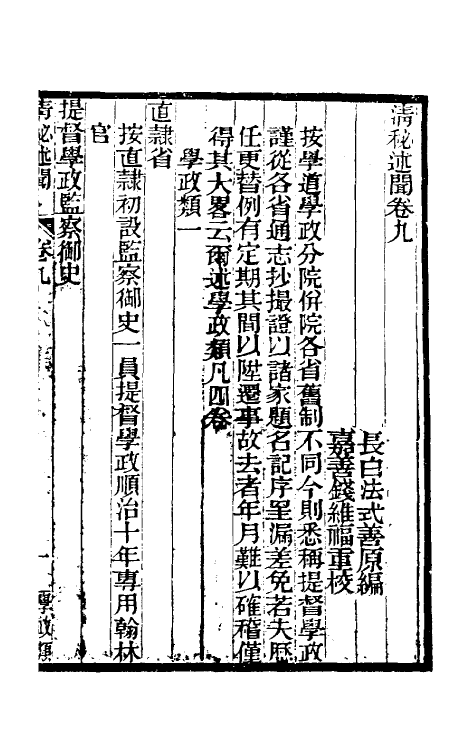 清秘述聞卷九
長白法式善原編
嘉善錢維福重校
按學道學政分院併院各省舊制不同今則悉稱提督學政
謹從各省通志抄撮證以諸家題名記序罣漏差免若夫歷
任更替例有定期其間以陞遷事故去者年月難以確稽僅
得其大畧云爾述學政類凡四卷
學政類一
直隸省
按直隸初設監察御史一員提督學政順治十年專用翰林
官
提督學政監察御史
清秘述聞 卷九 一 學政類